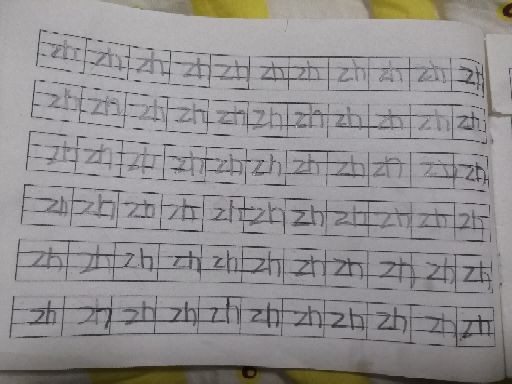 zh zh zh zh zh zh zh zh zh zh zh
zh zh zh zh zh zh zh zh zh zh zh
zh zh zh zh zh zh zh zh zh zh zh
zh zh zh zh zh zh zh zh zh zh zh
zh zh zh zh zh zh zh zh zh zh zh
zh zh zh zh zh zh zh zh zh zh zh